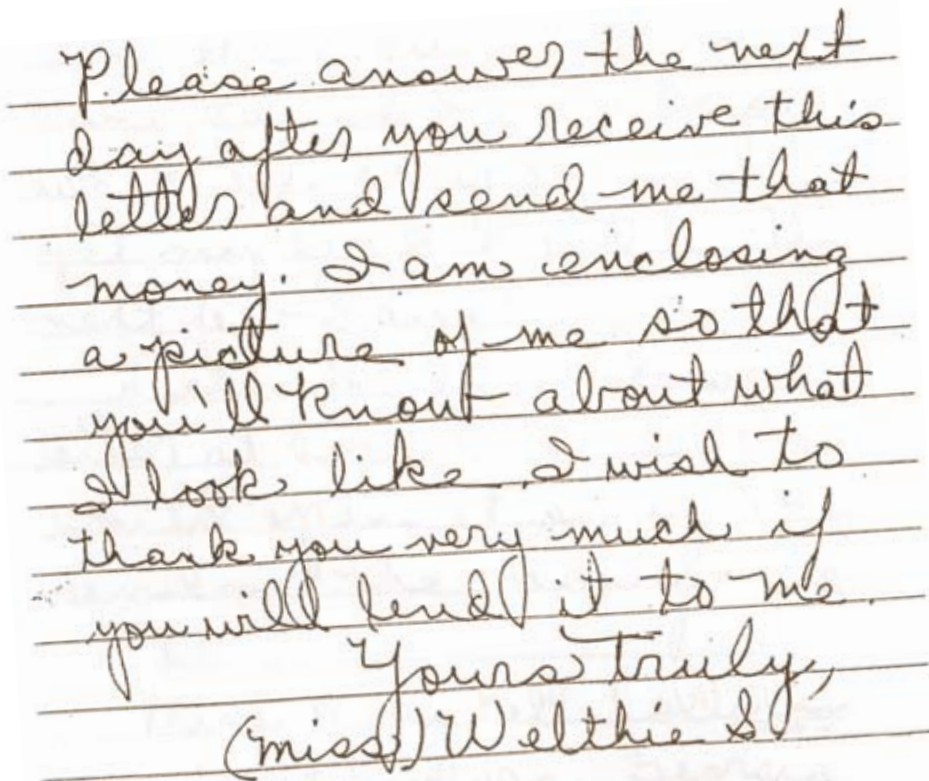 Please answer the next
day after you receive this
letter and send me that
money. I am enclosing
a picture of me so that
you'll know about what
I look like. I wish to
thank you very much if
you will lend it to me.
Yours truly,
(Miss) Welthie S.